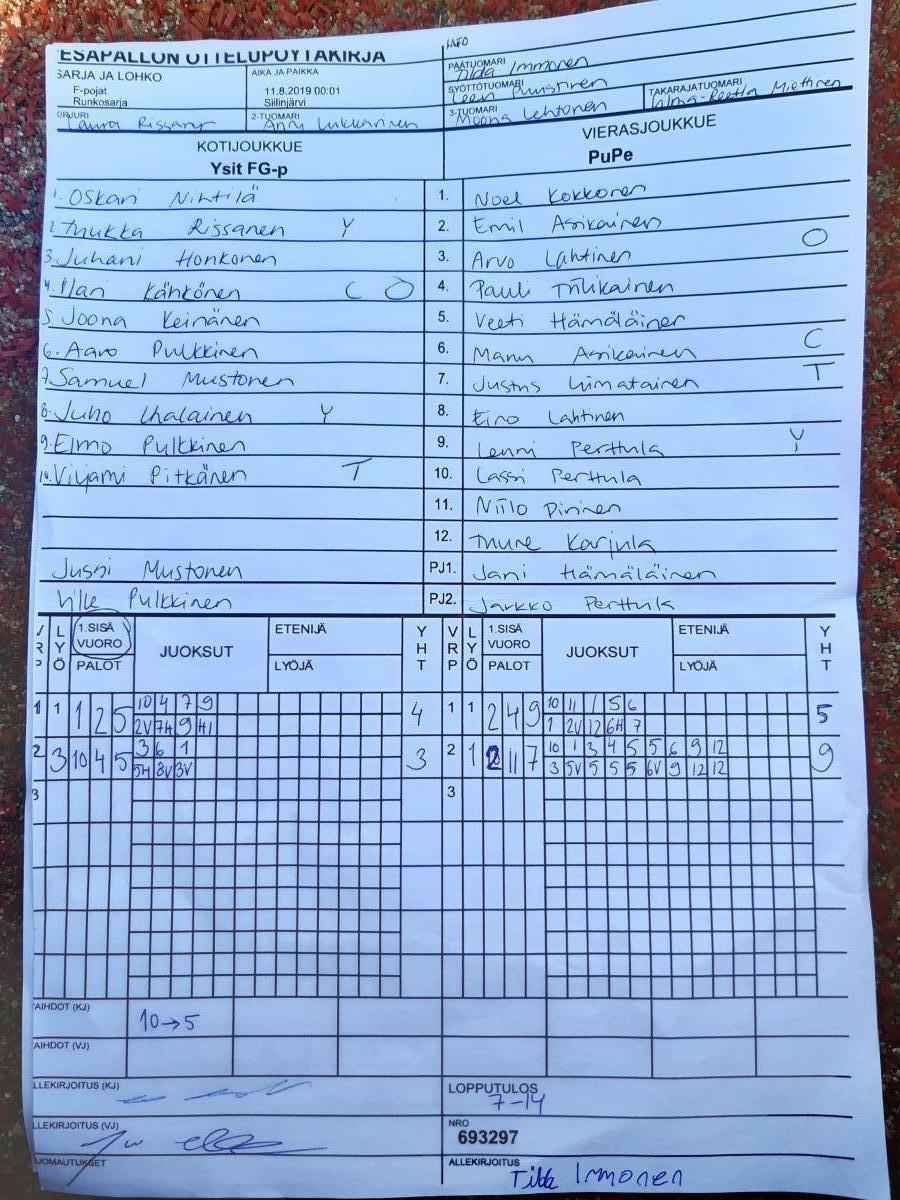 ESAPALLON OTTELUPÖYTÄKIRJA
INFO
SARJA JA LOHKO
F-pojat
Runkosarja
AIKA JA PAIKKA
11.8.2019 00:01
Siilinjärvi
PÄÄTUOMARI
Tilda Immonen
SYÖTTÖTUOMARI
Puustinen
TAKARAJATUOMARI
Miettinen
KIRJURI
Laura Rissanen
2-TUOMARI
Anni Lukkarinen
3-TUOMARI
Moona Lehtonen
KOTIJOUKKUE
Ysit FG-p
VIERASJOUKKUE
PuPe
1. Oskari Nihtilä
1. Noel Kokkonen
2. Rissanen Y
2. Emil Asikainen
3. Juhani Honkonen
3. Arvo Lahtinen O
4. Ilari Kähkönen C O
4. Pauli Tiilikainen
5. Joona Keinänen
5. Veeti Hämäläinen
6. Aaro Pulkkinen
6. Asikainen C
7. Samuel Mustonen
7. Justus Liimatainen T
8. Juho Ihalainen Y
8. Eino Lahtinen
9. Elmo Pulkkinen
9. Lenni Perttula Y
10. Viljami Pitkänen T
10. Lassi Perttula
11. Niilo Pirinen
12. Thure Karjula
Jussi Mustonen
PJ1. Jani Hämäläinen
Ville Pulkkinen
PJ2. Jarkko Perttula
VRP LYÖ 1.SISÄ VUORO PALOT JUOKSUT ETENIJÄ LYÖJÄ YHT
VRP LYÖ 1.SISÄ VUORO PALOT JUOKSUT ETENIJÄ LYÖJÄ YHT
1 1 1 2 5 10 4 7 9 4
2V 7H 9 H1
1 1 2 4 9 10 11 1 5 6 5
1 2V 12 6H 7
2 3 10 4 5 3 6 1 3
5H 8V 3V
2 1 2 11 7 10 1 3 4 5 5 6 9 12 9
3 5V 5 5 5 6V 9 12 12
3
3
AIHDOT (KJ)
10→5
AIHDOT (VJ)
LLEKIRJOITUS (KJ)
LOPPUTULOS
7-14
LLEKIRJOITUS (VJ)
NRO
693297
UOMAUTUKSET
ALLEKIRJOITUS
Tilda Immonen